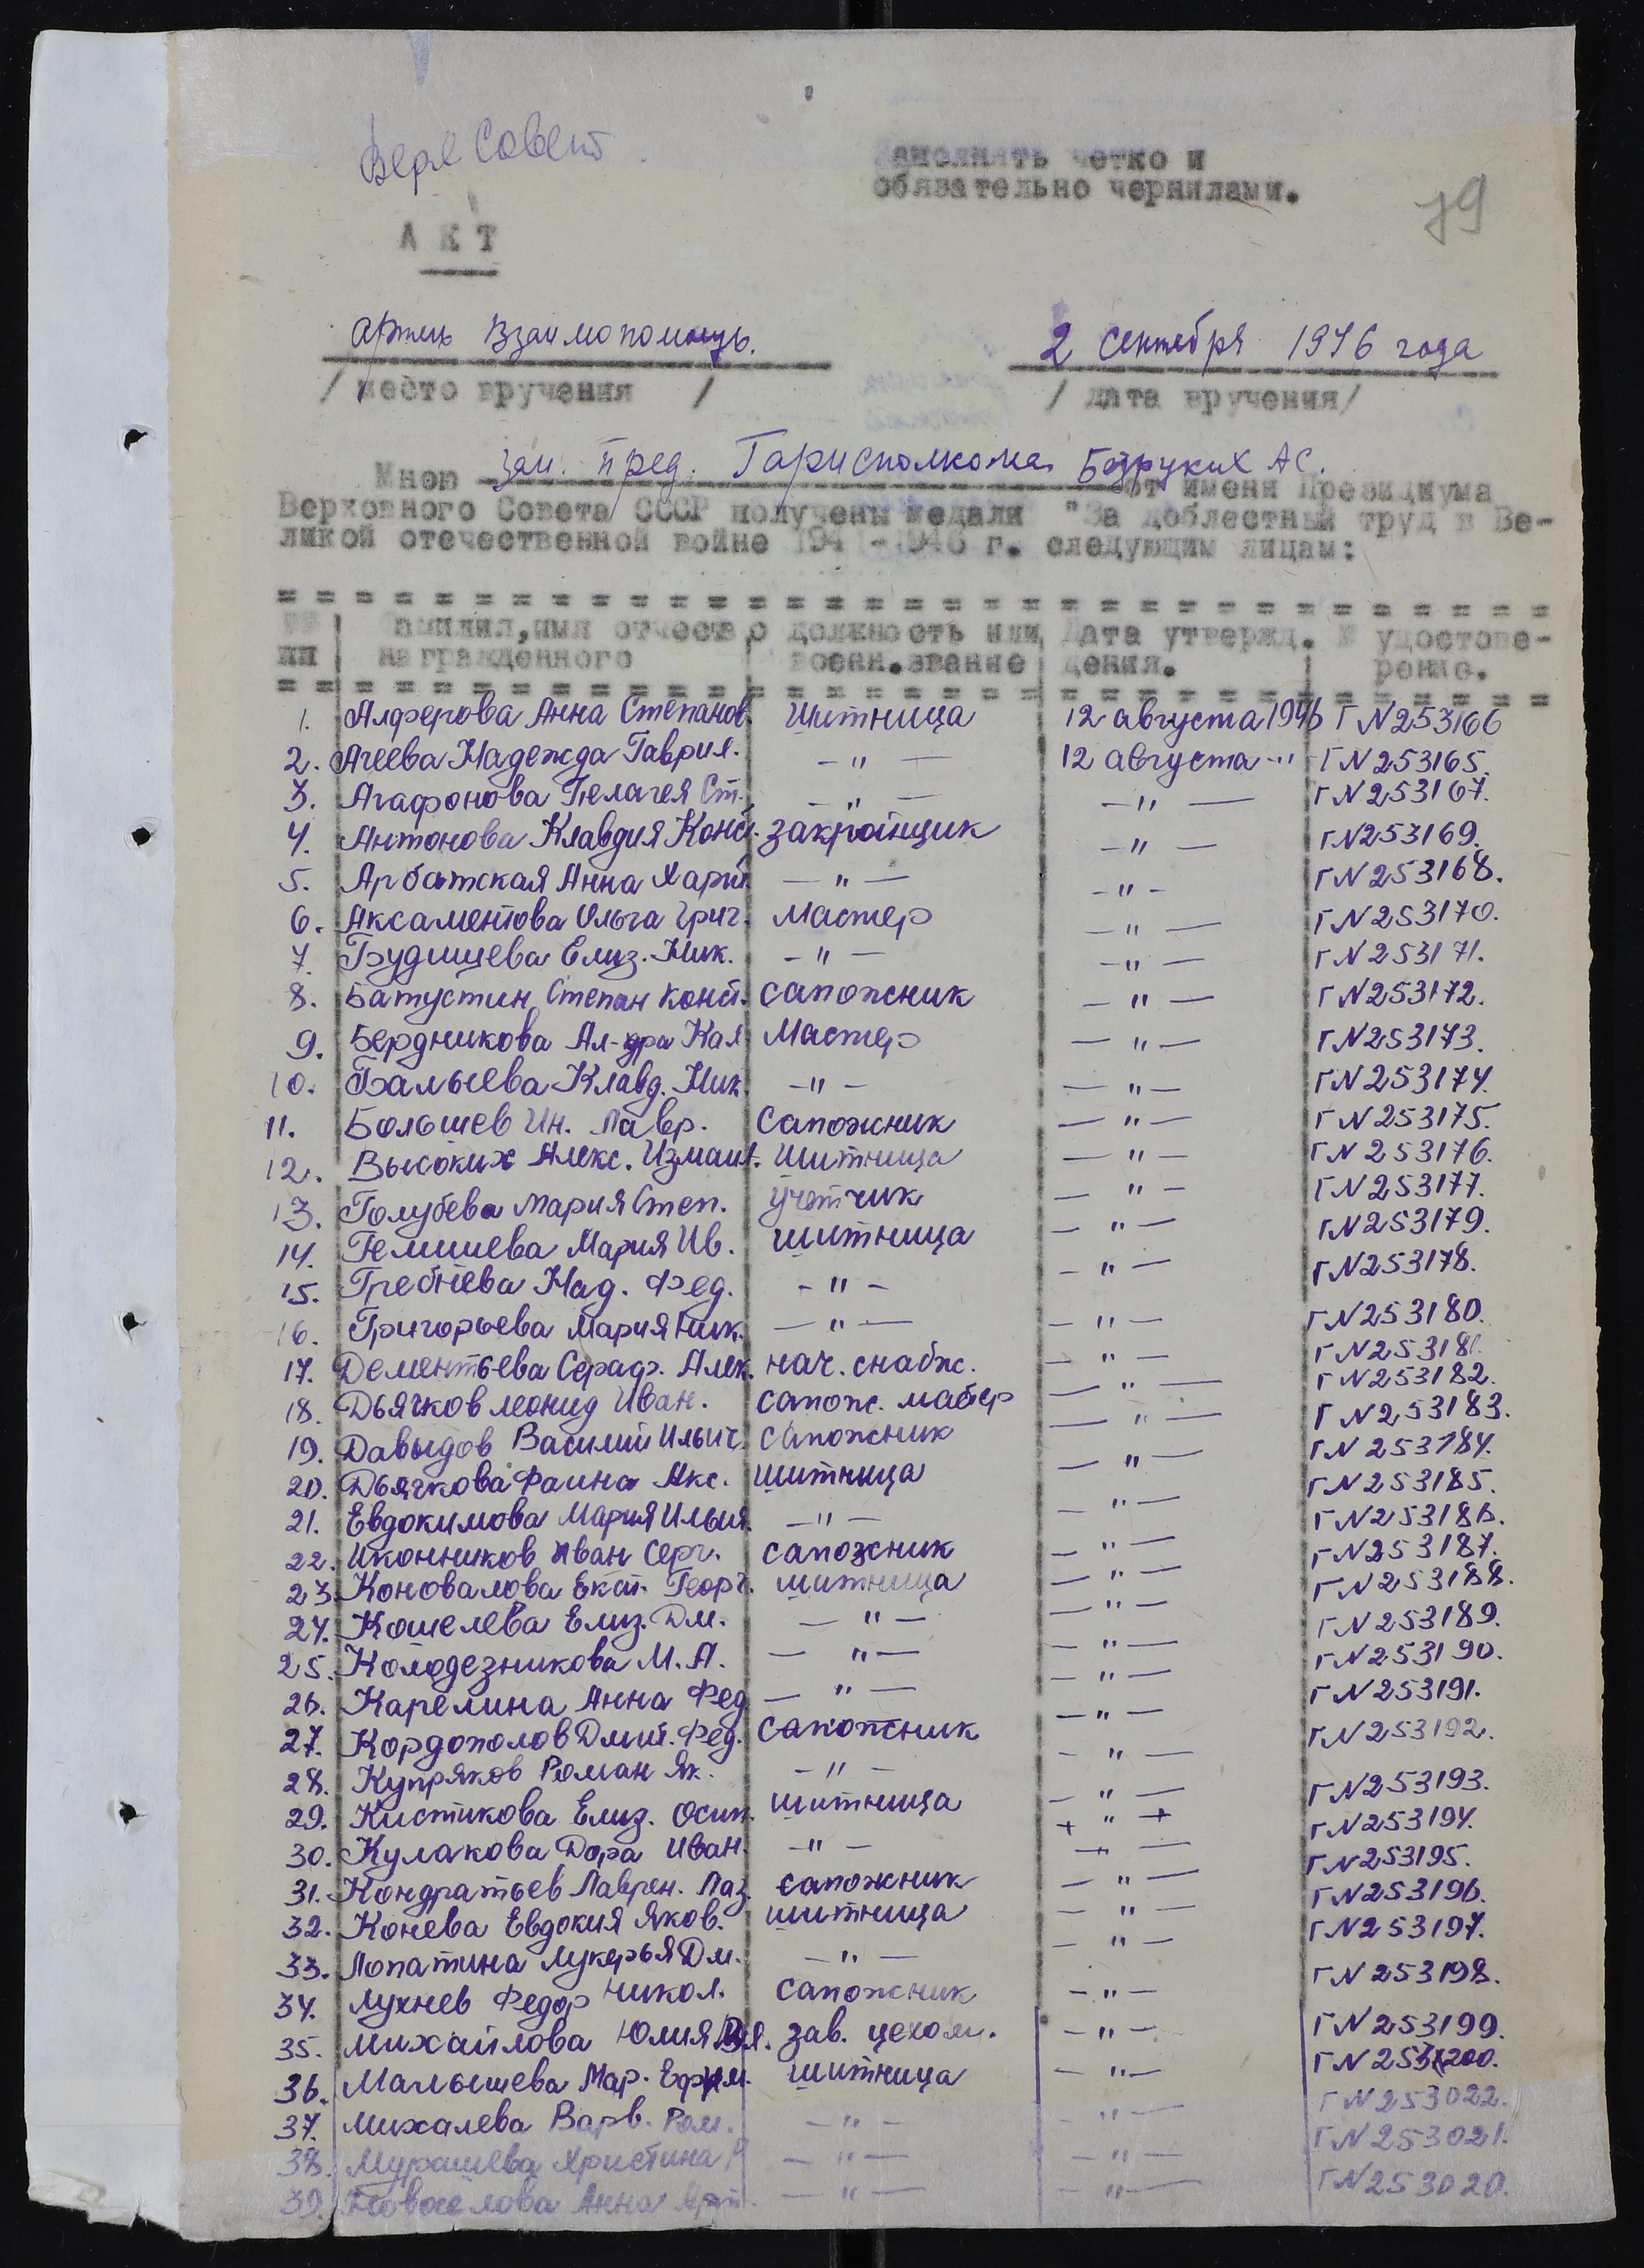 Верх Совет
Заполнять четко и
обязательно чернилами.
79
АКТ
артель Взаимопомощь.
2 сентября 1946 года
/ место вручения /
/ дата вручения/
Мною зам. пред. Гарисполкома Безруких АС. от имени Президиума
Верховного Совета СССР получены медали "За доблестный труд в Ве-
ликой отечественной войне 1941-1945 г. следующим лицам:
№№ пп | Фамилия, имя отчество награжденного | должность или воен.звание | Дата утвержд. дения. | № удостове- рение.
1. Алферова Анна Степанов. шитница 12 августа 1946 Г N 253166
2. Агеева Надежда Гаврил. -"- 12 августа -"- Г N 253165.
3. Агафонова Пелагея Ст. -"- -"- Г N 253167.
4. Антонова Клавдия Конст. закройщик -"- Г N 253169.
5. Арбатская Анна Харит. -"- -"- Г N 253168.
6. Аксаментова Ольга Григ. мастер -"- Г N 253170.
7. Будищева Елиз. Ник. -"- -"- Г N 253171.
8. Батустин Степан Конст. сапожник -"- Г N 253172.
9. Бердникова Ал-дра Кал. мастер -"- Г N 253173.
10. Балыева Клавд. Ник. -"- -"- Г N 253174.
11. Большев Ин. Лавр. сапожник -"- Г N 253175.
12. Высоких Алекс. Измаил. шитница -"- Г N 253176.
13. Голубева Мария Степ. учетчик -"- Г N 253177.
14. Гемишева Мария Ив. шитница -"- Г N 253179.
15. Гребнева Над. Фед. -"- -"- Г N 253178.
16. Григорьева Мария Ник. -"- -"- Г N 253180.
17. Дементьева Сераф. Алек. нач. снабж. -"- Г N 253181.
18. Дьячков Леонид Иван. сапож. мастер -"- Г N 253182.
19. Давыдов Василий Ильич. сапожник -"- Г N 253183.
20. Дьячкова Фаина Акс. шитница -"- Г N 253184.
21. Евдокимова Мария Ильин. -"- -"- Г N 253185.
22. Иконников Иван Серг. сапожник -"- Г N 253186.
23. Коновалова Екат. Георг. шитница -"- Г N 253187.
24. Кошелева Елиз. Дм. -"- -"- Г N 253188.
25. Колодезникова М. А. -"- -"- Г N 253189.
26. Карелина Анна Фед. -"- -"- Г N 253190.
27. Кордополов Дмит. Фед. сапожник -"- Г N 253191.
28. Купряков Роман Як. -"- -"- Г N 253192.
29. Кистикова Елиз. Осип. шитница -"- Г N 253193.
30. Кулакова Дора Иван. -"- -"- Г N 253194.
31. Кондратьев Лаврен. Лаз. сапожник -"- Г N 253195.
32. Конева Евдокия Яков. шитница -"- Г N 253196.
33. Лопатина Лукерья Дм. -"- -"- Г N 253197.
34. Лухнев Федор Никол. сапожник -"- Г N 253198.
35. Михайлова Юлия зав. цехом. -"- Г N 253199.
36. Малышева Мар. Ефим. шитница -"- Г N 253200.
37. Михалева Варв. Ром. -"- -"- Г N 253022.
38. Мурашева Христина -"- -"- Г N 253021.
39. Новоселова Анна -"- -"- Г N 253020.